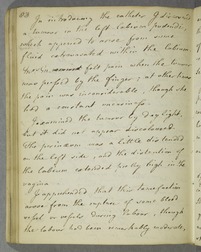 88
In introducing the catheter I discovered
a tumor in the left labium pudendi,
which appeared to arise from some
fluid extravasated within the labium
felt pain when the tumor
was pressed by the finger; at other times
the pain was inconsiderable, though she
had a constant uneasiness.
I examined the tumor by day light,
but it did not appear discoloured.
The perinaeum was a little distended
on the left side, and the distention of
the labium extended pretty high in the
vagina.
I apprehended that this tumefaction
arose from the rupture of some blood
vessel or vessels during labour, though
the labour had been remarkably moderate,